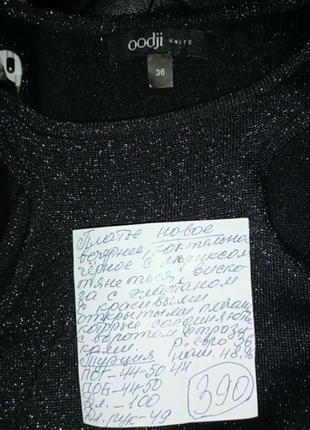 oodji KNITS
36
Платье новое
вечернее, коктельное
чёрное с люриксом
тянеться, виско
за с эластаном
с красивыми
открытыми плечами
которые соединяют
с воротом стразу
ками. р. евро 36
Турция наш. 48.
ПОГ-44-50 ЧН.
ПОБ-44-50
Дл. -100
Дл. рук-49
390